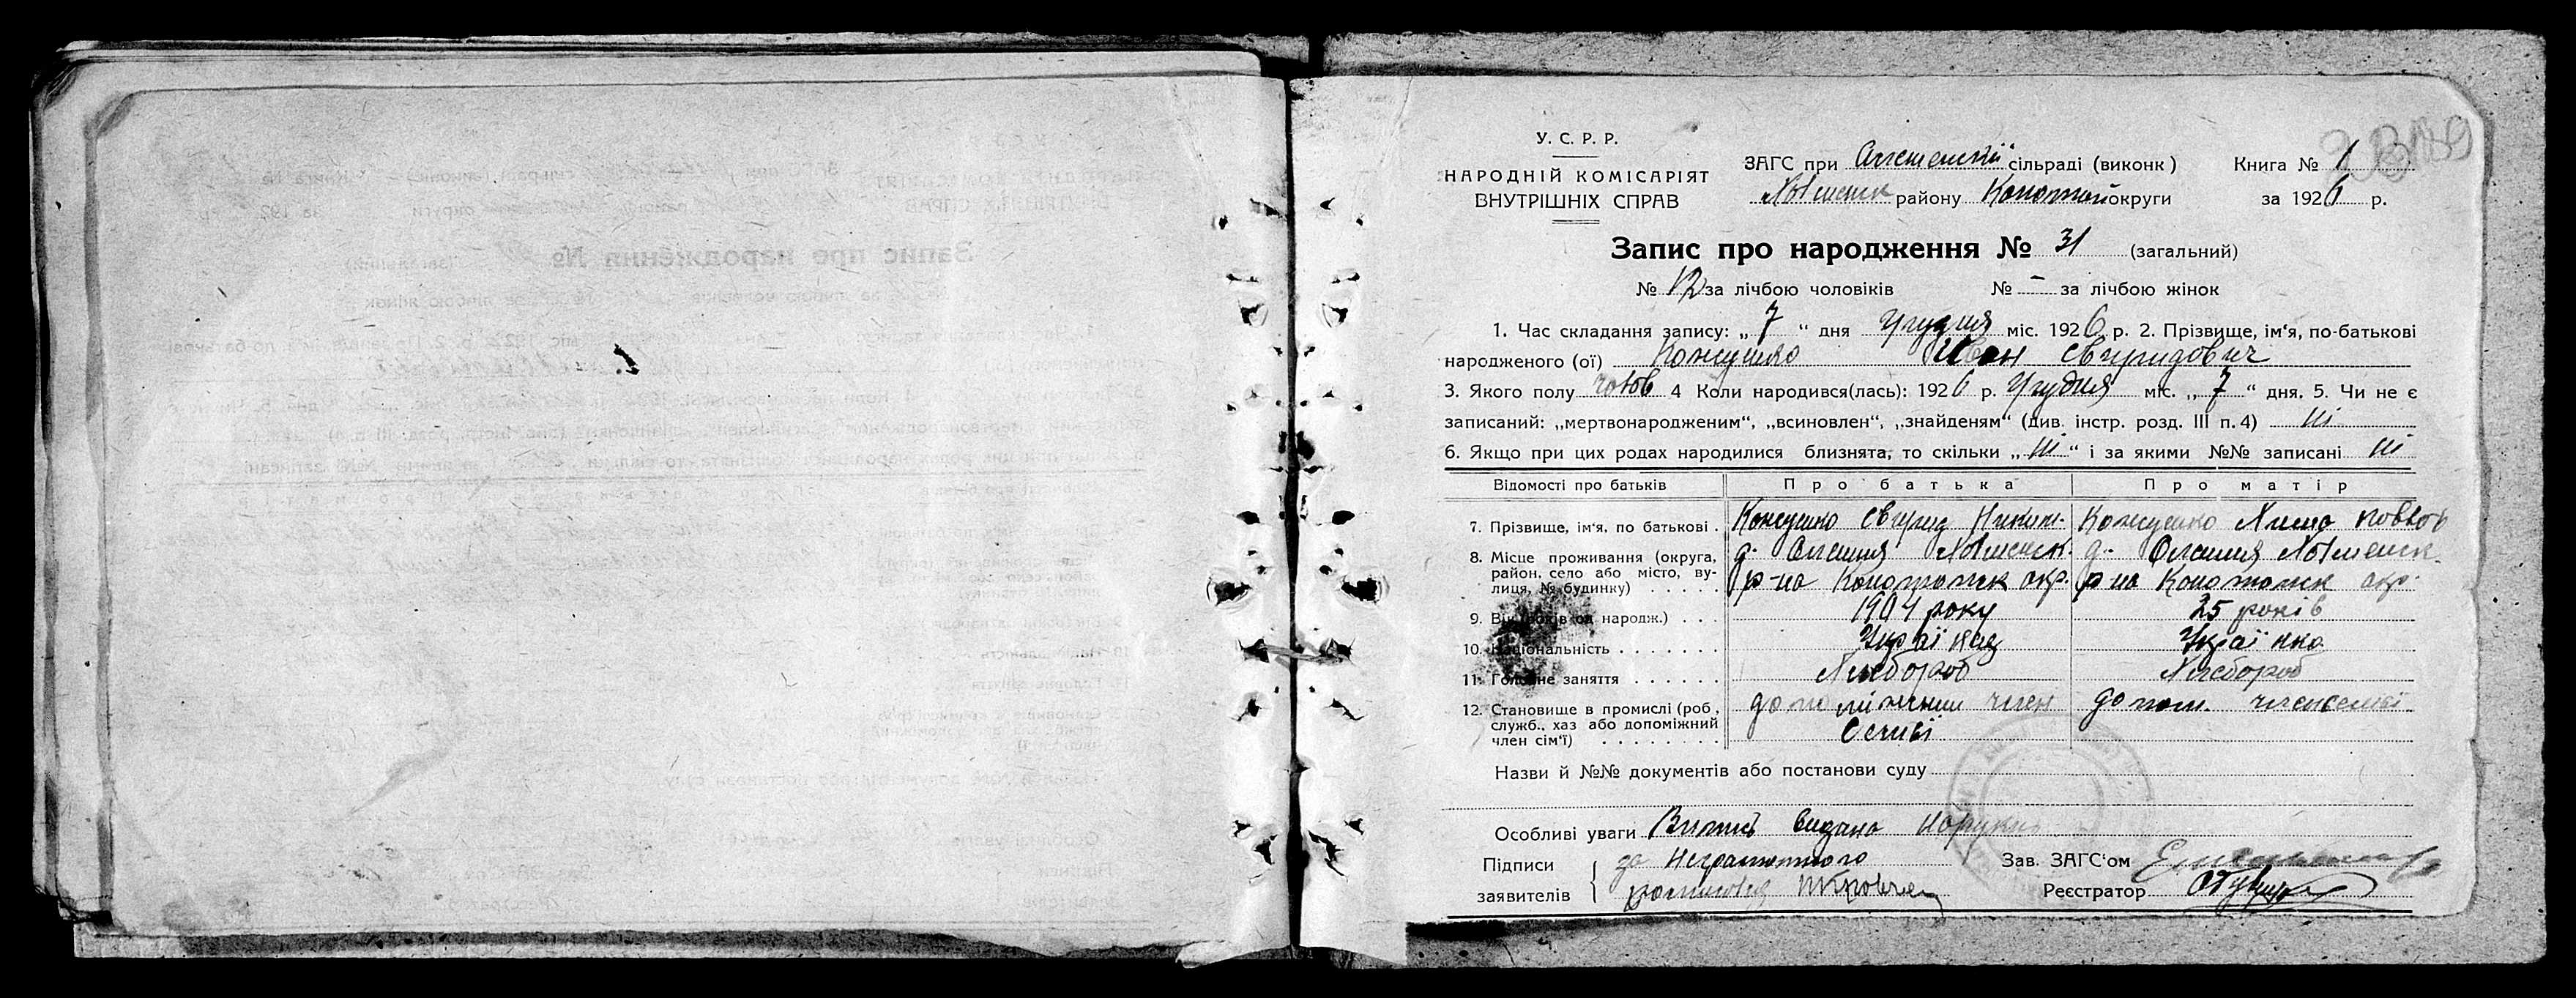 У. С. Р. Р.
НАРОДНІЙ КОМІСАРІЯТ
ВНУТРІШНІХ СПРАВ
ЗАГС при сільраді (виконк)
району Конотоп округи
Книга № 1
за 1926 р.
Запис про народження № 31 (загальний)
№ 12 за лічбою чоловіків № – за лічбою жінок
1. Час складання запису: „7“ дня Грудня міс. 1926 р. 2. Прізвище, ім'я, по-батькові
народженого (ої) Кожушко Иван Свиридович
3. Якого полу чолов 4 Коли народився(лась): 1926 р. Грудня міс. „7“ дня. 5. Чи не є
записаний: „мертвонародженим“, „всиновлен“, „знайденям“ (див. інстр. розд. III п. 4) ні
6. Якщо при цих родах народилися близнята, то скільки „ні“ і за якими №№ записані ні
Відомості про батьків Про батька Про матір
7. Прізвище, ім'я, по батькові . Кожушко Свирид Никит. Кожушко
8. Місце проживання (округа, район, село або місто, вулиця, № будинку) . . . . .
р-на Конотопск окр. р-на Конотопск окр.
9. Вік (років од народж.) . . . 1904 року 25 років
10. Національність . . . . . . . Українец Українка
11. Головне заняття . . . . . . Хлебороб Хлебороб
12. Становище в промислі (роб, служб., хаз або допоміжний член сім'ї) . . . . . . . . допоміжний член семиї допом. член семиї
Назви й №№ документів або постанови суду
Особливі уваги Випись видана на руки
Підписи заявителів за Неграмотного
росписався
Зав. ЗАГС'ом
Реєстратор